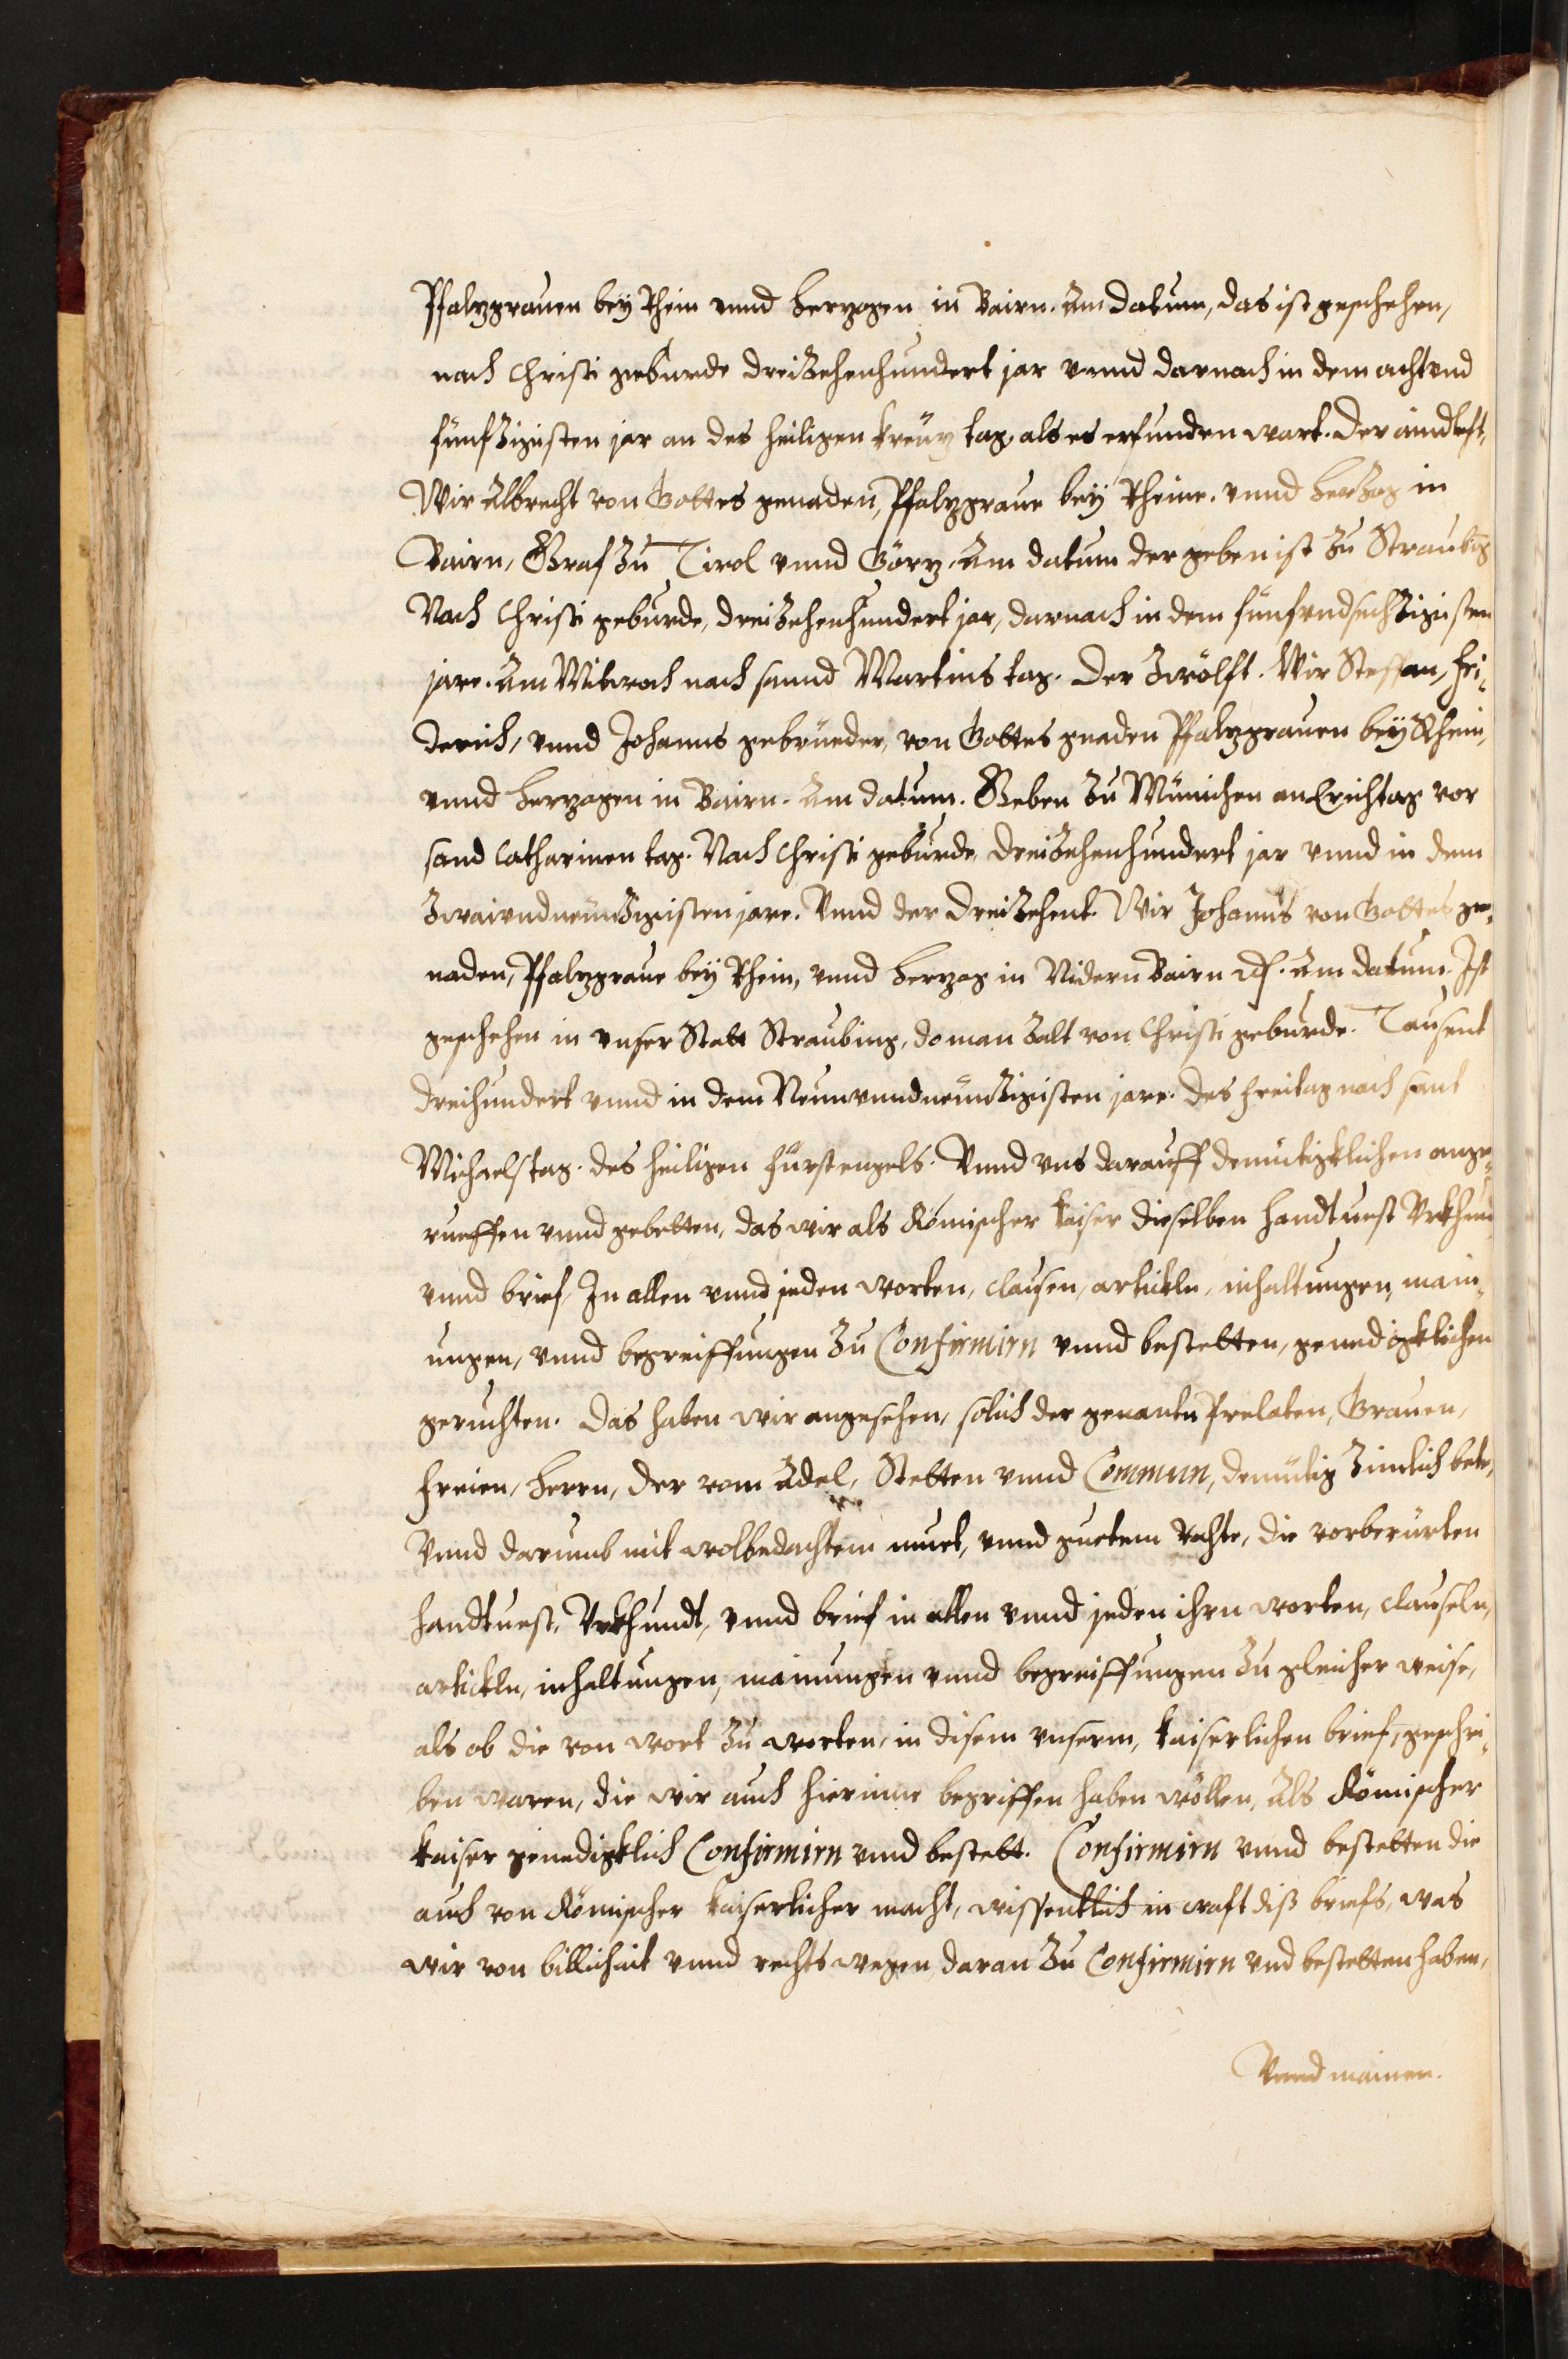 Pfalzgrauen bey Rhein vnnd Herzogen in Bairn. Am datum, das ist geschehen,
nach Christi geburde dreizehenhundert jar vnnd darnach in dem achtvnd
fünfzigisten jar an des heiligen kreuz tag, als es erfunden wart. Der aindleft,
Wir Albrecht von Gottes genaden, Pfalzgraue bey Rheine, vnnd Herzog in
Bairn, Graf zu Tirol vnnd Görz. Am datum der geben ist zu Straubing
Nach Christi geburde, dreizehenhundert jar, darnach in dem fünfvndsechzigisten
jare. Am Mitwoch nach sannd Martins tag. Der zwölft. Wir Steffan, Fri¬
derich, vnnd Johanns gebrueder, von Gottes gnaden Pfalzgrauen bey Rhein,
vnnd Herzogen in Bairn. Am datum. Geben zu München an Erichtag vor
sand Catharinen tag. Nach Christi geburde, dreizehenhundert jar vnnd in dem
zwaivndneunzigisten jare. Vnnd der dreizehent. Wir Johanns von Gottes ge¬
naden, Pfalzgraue bey Rhein, vnnd Herzog in Nidern Bairn etc. Am datum. Ist
geschehen in vnser Statt Straubing, do man zalt von Christi geburde. Tausent
dreihundert vnnd in dem Neunvnndneunzigisten jare. des Freitag nach sant
Michaelstag. des heiligen Fürstengels. Vnnd vns darauff demutigklichen ange¬
rueffen vnnd gebetten, das wir als Römischer kaiser dieselben Handtuest Vrkhund
vnnd brief, In allen vnnd jeden worten, clausen, artickln, inhaltungen, main¬
ungen, vnnd begreiffungen zu Confirmirn vnnd bestetten, genedigklichen
geruchten. Das haben wir angesehen, solich der genantn Prelaten, Grauen,
Freien, Herrn, der vom Adel, Stetten vnnd Commun, demütig zimlich bete,
Vnnd darumb mit wolbedachtem muet, vnnd guetem Rahte, die vorberürten
Handtuest, Vrkhundt, vnnd brief in allen vnnd jeden ihrn worten, clauseln,
artickln, inhaltungen, mainungen vnnd begreiffungen zu gleicher weise,
als ob die von wort zu worten, in disem vnserm, kaiserlichen brief, geschri¬
ben waren, die wir auch hierinne begriffen haben wöllen, Als Römischer
kaiser genedigklich Confirmirn vnnd bestett. Confirmirn vnnd bestetten die
auch von Römischer kaiserlicher macht, wissentlich in craft diß briefs, was
wir von billichait vnnd rechts wegen daran zu Confirmirn vnd bestetten haben,
Vnnd mainen.